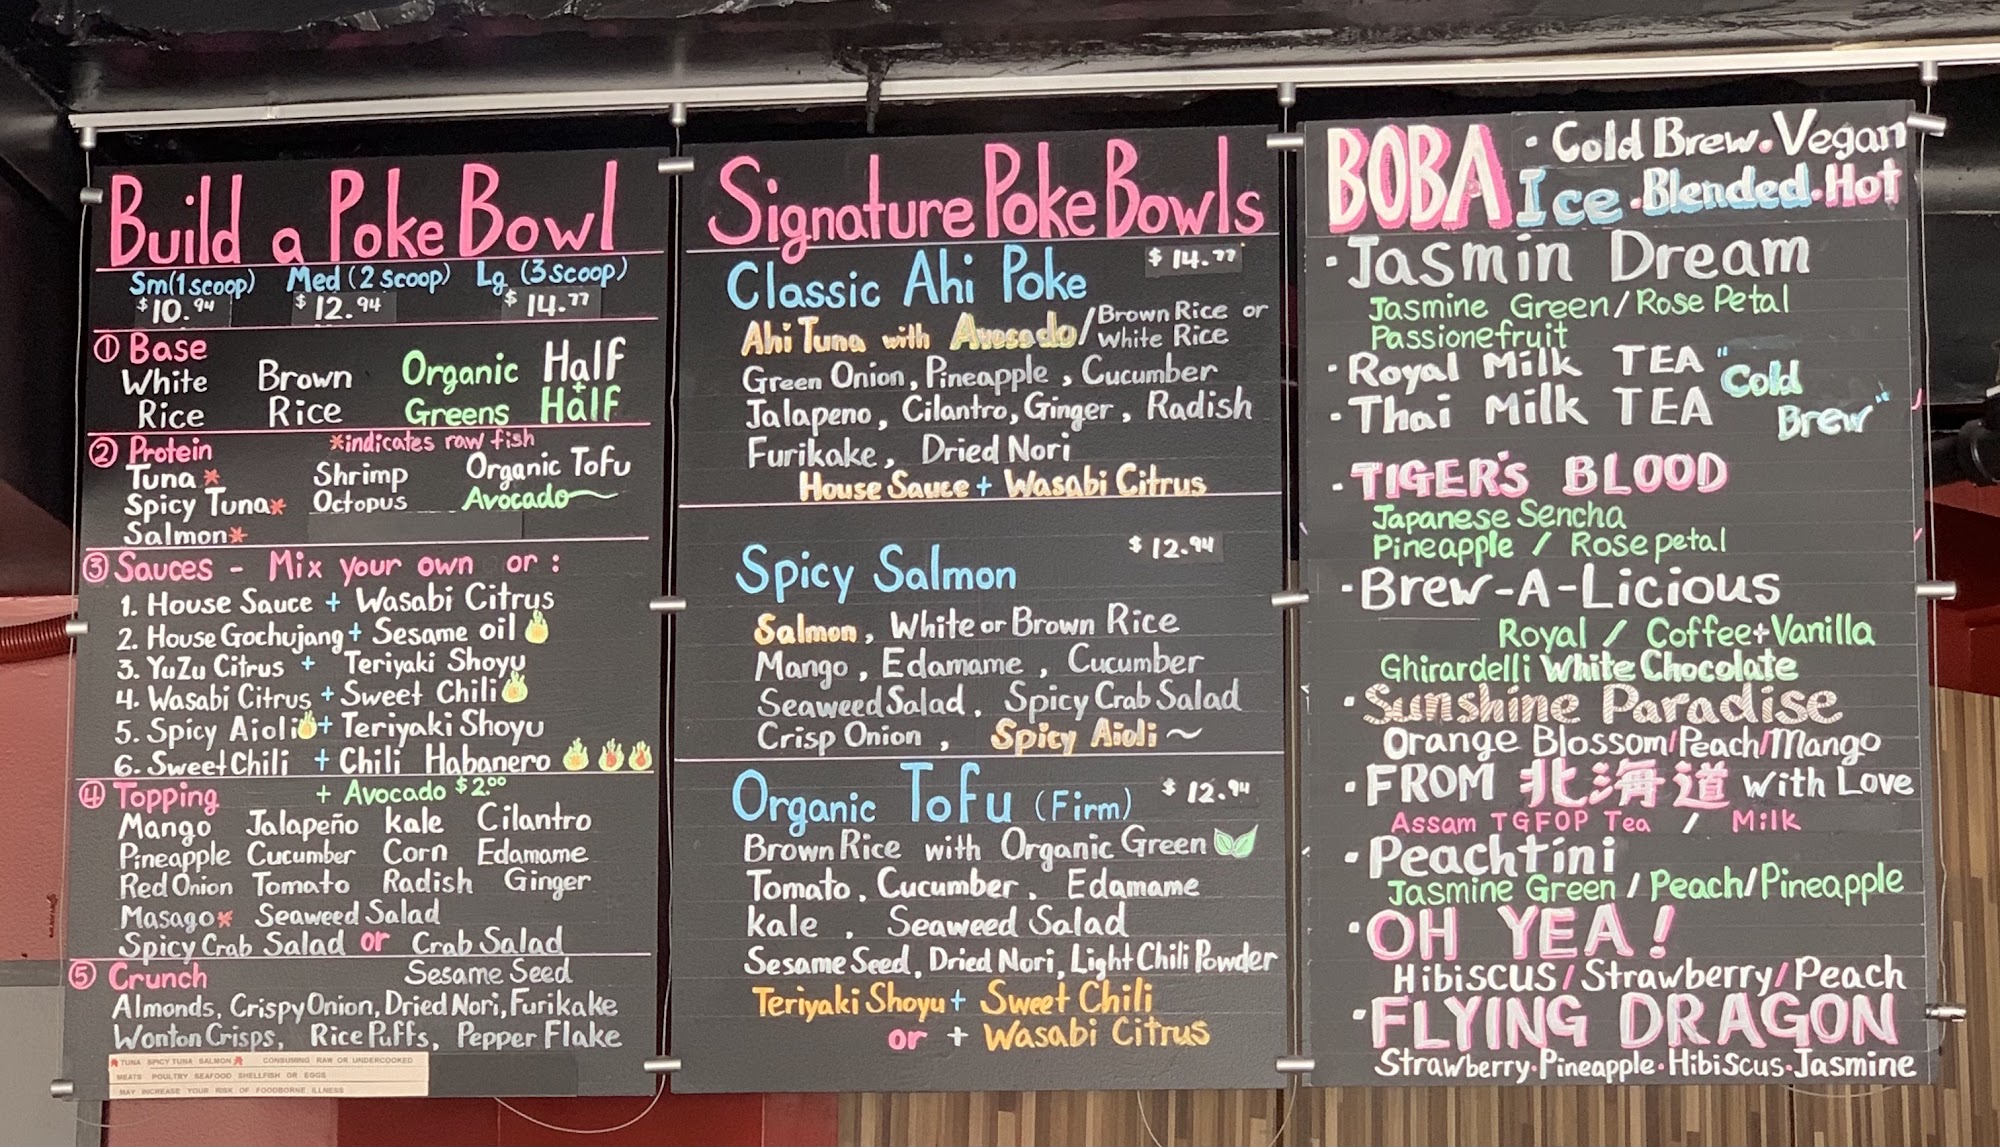 Build a Poke Bowl
Sm(1 scoop) Med (2 scoop) Lg (3 scoop)
$10.94 $12.94 $14.77
① Base
White Brown Organic Half
Rice Rice Greens + Half
② Protein *indicates raw fish
Tuna* Shrimp Organic Tofu
Spicy Tuna* Octopus Avocado~
Salmon*
③ Sauces - Mix your own or :
1. House Sauce + Wasabi Citrus
2. House Gochujang + Sesame oil
3. YuZu Citrus + Teriyaki Shoyu
4. Wasabi Citrus + Sweet Chili
5. Spicy Aioli + Teriyaki Shoyu
6. Sweet Chili + Chili Habanero
④ Topping + Avocado $2.00
Mango Jalapeño kale Cilantro
Pineapple Cucumber Corn Edamame
Red Onion Tomato Radish Ginger
Masago* Seaweed Salad
Spicy Crab Salad or Crab Salad
⑤ Crunch Sesame Seed
Almonds, Crispy Onion, Dried Nori, Furikake
Wonton Crisps, Rice Puffs, Pepper Flake
* TUNA SPICY TUNA SALMON * CONSUMING RAW OR UNDERCOOKED
MEATS POULTRY SEAFOOD SHELLFISH OR EGGS
MAY INCREASE YOUR RISK OF FOODBORNE ILLNESS
Signature Poke Bowls
Classic Ahi Poke $14.77
Ahi Tuna with Avocado / Brown Rice or
White Rice
Green Onion, Pineapple, Cucumber
Jalapeno, Cilantro, Ginger, Radish
Furikake, Dried Nori
House Sauce + Wasabi Citrus
Spicy Salmon $12.94
Salmon, White or Brown Rice
Mango, Edamame, Cucumber
Seaweed Salad, Spicy Crab Salad
Crisp Onion, Spicy Aioli ~
Organic Tofu (Firm) $12.94
Brown Rice with Organic Green
Tomato, Cucumber, Edamame
kale, Seaweed Salad
Sesame Seed, Dried Nori, Light Chili Powder
Teriyaki Shoyu + Sweet Chili
or + Wasabi Citrus
BOBA · Cold Brew · Vegan
Ice · Blended · Hot
· Jasmin Dream
Jasmine Green / Rose Petal
Passionefruit
· Royal Milk TEA "Cold
· Thai Milk TEA Brew"
· TIGER'S BLOOD
Japanese Sencha
Pineapple / Rose petal
· Brew-A-Licious
Royal / Coffee + Vanilla
Ghirardelli White Chocolate
· Sunshine Paradise
Orange Blossom/Peach/Mango
· FROM 北海道 With Love
Assam TGFOP Tea / Milk
· Peachtini
Jasmine Green / Peach/Pineapple
· OH YEA!
Hibiscus/Strawberry/Peach
· FLYING DRAGON
Strawberry·Pineapple·Hibiscus·Jasmine